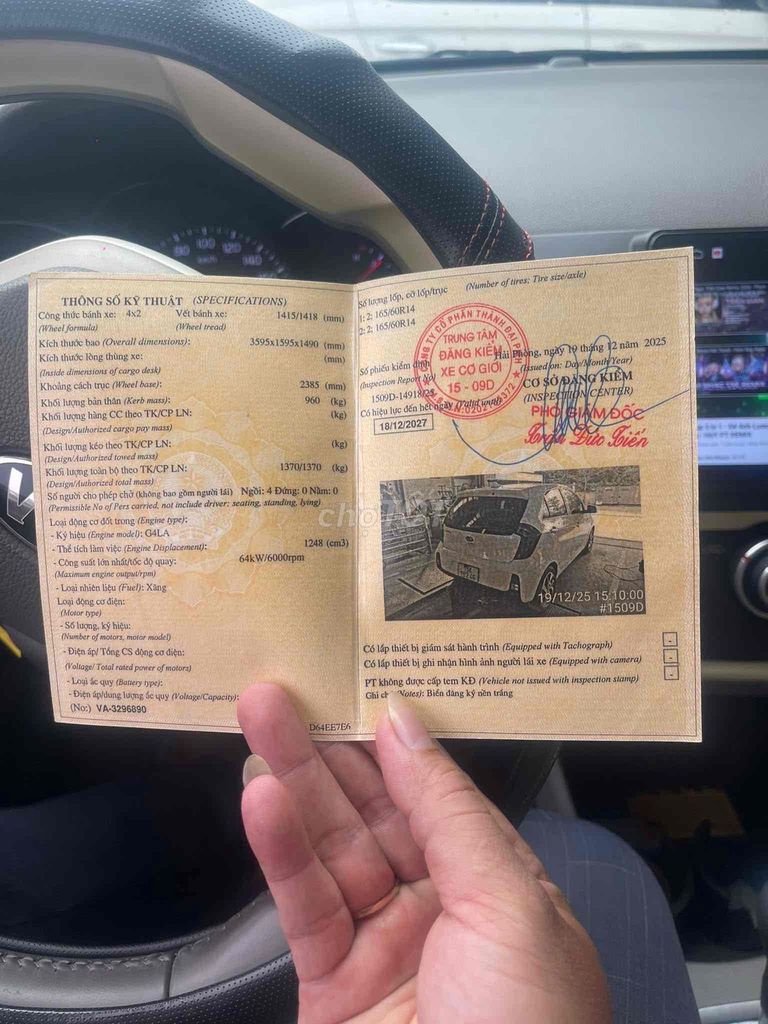 THÔNG SỐ KỸ THUẬT (SPECIFICATIONS)
Công thức bánh xe: 4x2 Vết bánh xe: 1415/1418 (mm)
(Wheel formula) (Wheel tread)
Kích thước bao (Overall dimensions): 3595x1595x1490 (mm)
Kích thước lòng thùng xe: (mm)
(Inside dimensions of cargo desk)
Khoảng cách trục (Wheel base): 2385 (mm)
Khối lượng bản thân (Kerb mass): 960 (kg)
Khối lượng hàng CC theo TK/CP LN: (kg)
(Design/Authorized cargo pay mass)
Khối lượng kéo theo TK/CP LN: (kg)
(Design/Authorized towed mass)
Khối lượng toàn bộ theo TK/CP LN: 1370/1370 (kg)
(Design/Authorized total mass)
Số người cho phép chở (không bao gồm người lái) Ngồi: 4 Đứng: 0 Nằm: 0
(Permissible No of Pers carried, not include driver: seating, standing, lying)
Loại động cơ đốt trong (Engine type):
- Ký hiệu (Engine model): G4LA
- Thể tích làm việc (Engine Displacement): 1248 (cm3)
- Công suất lớn nhất/tốc độ quay: 64kW/6000rpm
(Maximum engine output/rpm)
- Loại nhiên liệu (Fuel): Xăng
Loại động cơ điện:
(Motor type)
- Số lượng, ký hiệu:
(Number of motors, motor model)
- Điện áp/ Tổng CS động cơ điện:
(Voltage/ Total rated power of motors)
- Loại ắc quy (Battery type):
- Điện áp/dung lượng ắc quy (Voltage/Capacity):
(No:) VA-3296890
D64EE7E6
Số lượng lốp, cỡ lốp/trục (Number of tires: Tire size/axle)
1: 2: 165/60R14
2: 2: 165/60R14
CÔNG TY CỔ PHẦN THÀNH ĐẠI PHÁT
TRUNG TÂM
ĐĂNG KIỂM
XE CƠ GIỚI
15 - 09D
Hải Phòng, ngày 19 tháng 12 năm 2025
(Issued on: Day/Month/Year)
Số phiếu kiểm định
(Inspection Report No)
1509D-14918/25
CƠ SỞ ĐĂNG KIỂM
(INSPECTION CENTER)
Có hiệu lực đến hết ngày (Valid until)
18/12/2027
PHÓ GIÁM ĐỐC
Trần Đức Tiến
chợ Tốt
19/12/25 15:10:00
#1509D
Có lắp thiết bị giám sát hành trình (Equipped with Tachograph) -
Có lắp thiết bị ghi nhận hình ảnh người lái xe (Equipped with camera) -
PT không được cấp tem KĐ (Vehicle not issued with inspection stamp) -
Ghi chú (Notes): Biển đăng ký nền trắng
80 100 120 140